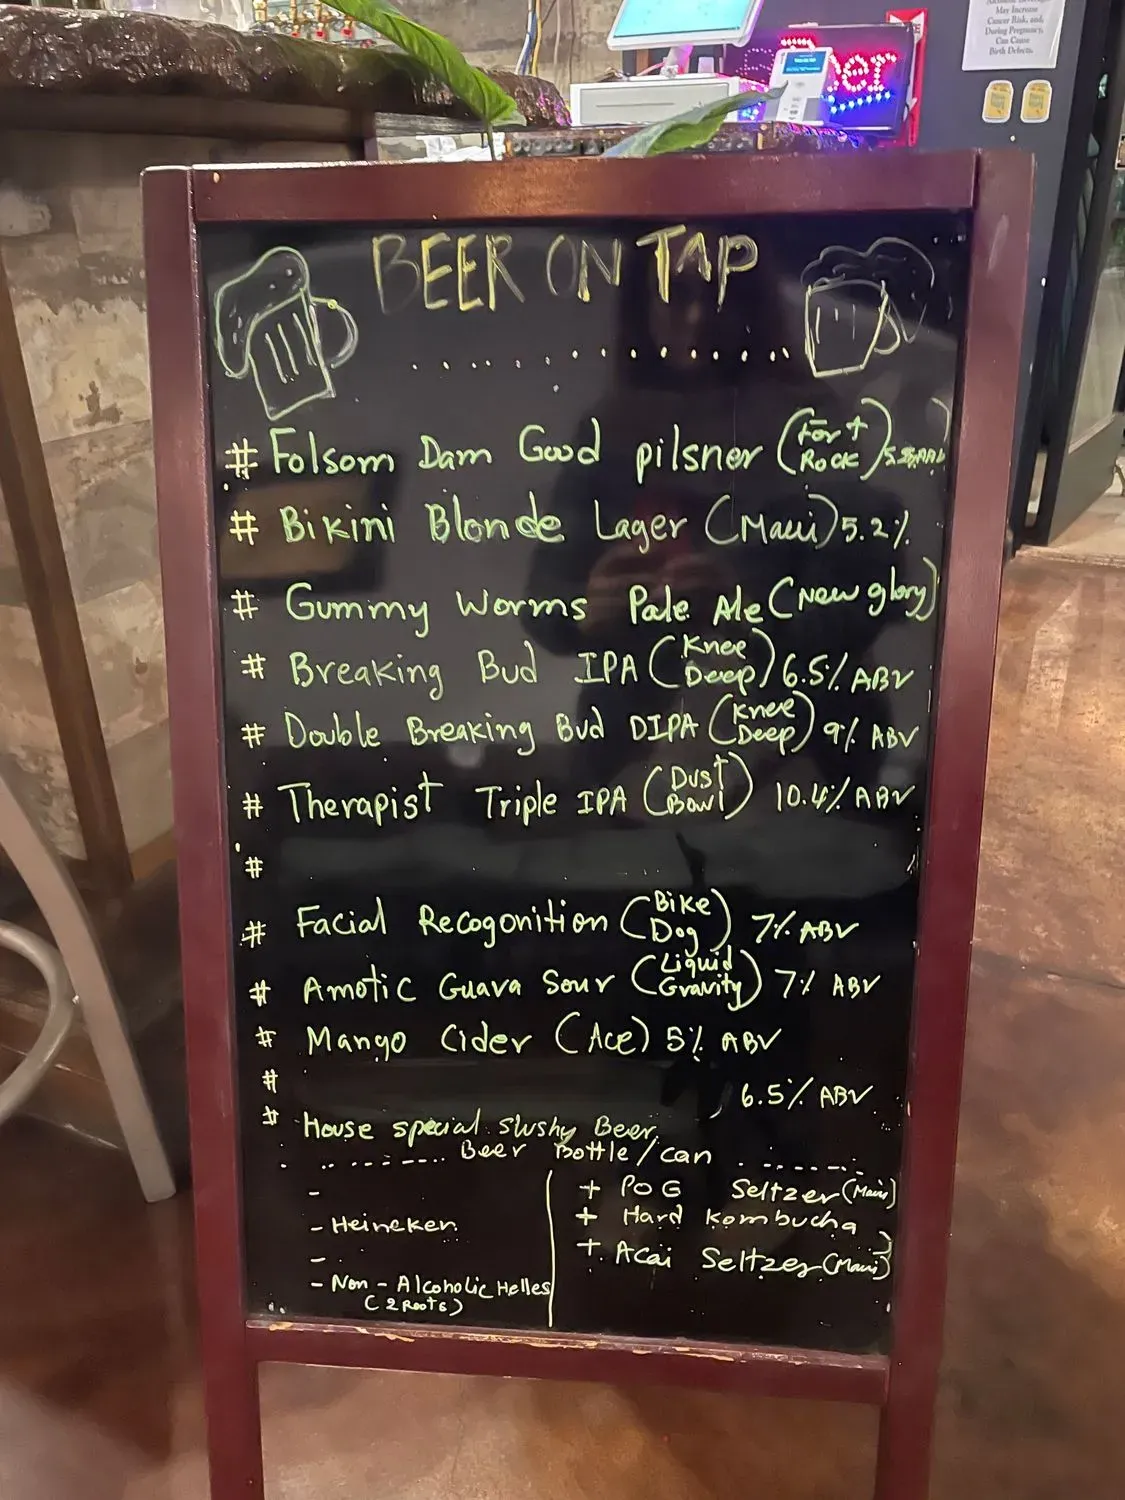 Alcoholic Beverages
May Increase
Cancer Risk, and,
During Pregnancy,
Can Cause
Birth Defects.
BEER ON TAP
# Folsom Dam Good pilsner (Fort Rock)
# Bikini Blonde Lager (Maui) 5.2%
# Gummy Worms Pale Ale (New glory)
# Breaking Bud IPA (Knee Deep) 6.5% ABV
# Double Breaking Bud DIPA (Knee Deep) 9% ABV
# Therapist Triple IPA (Dust Bowl) 10.4% ABV
#
# Facial Recogonition (Bike Dog) 7% ABV
# Amotic Guava Sour (Liquid Gravity) 7% ABV
# Mango Cider (Ace) 5% ABV
#
6.5% ABV
# House special slushy Beer
Beer Bottle/can
-
- Heineken
-
- Non-Alcoholic Helles
(2 Roots)
+ POG Seltzer (Maui)
+ Hard Kombucha
+ Acai Seltzer (Maui)